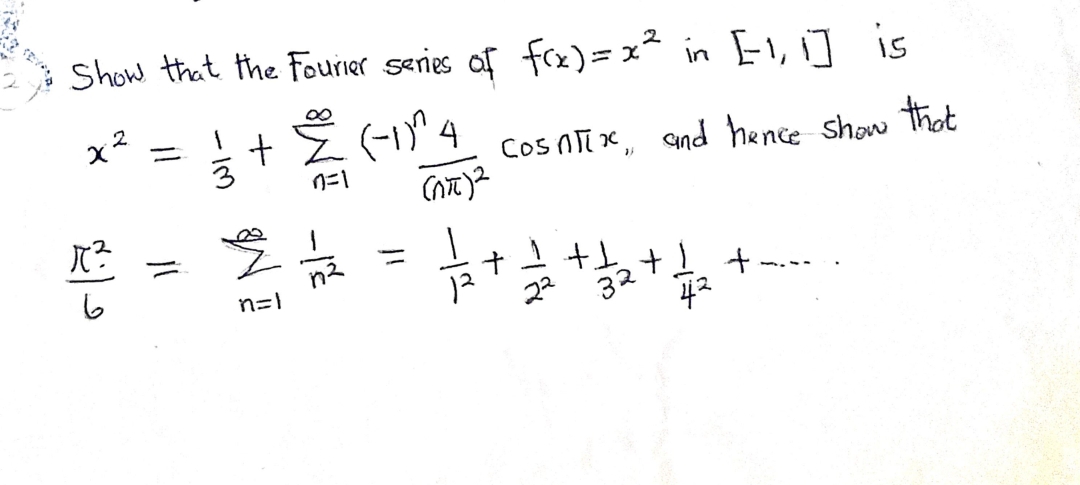 2. Show that the Fourier series of f(x) = x² in [-1, 1] is
x² = 1/3 + ∑_{n=1}^{∞} (-1)ⁿ 4/(nπ)² cos nπx,, and hence show that
π²/6 = ∑_{n=1}^{∞} 1/n² = 1/1² + 1/2² + 1/3² + 1/4² + ......